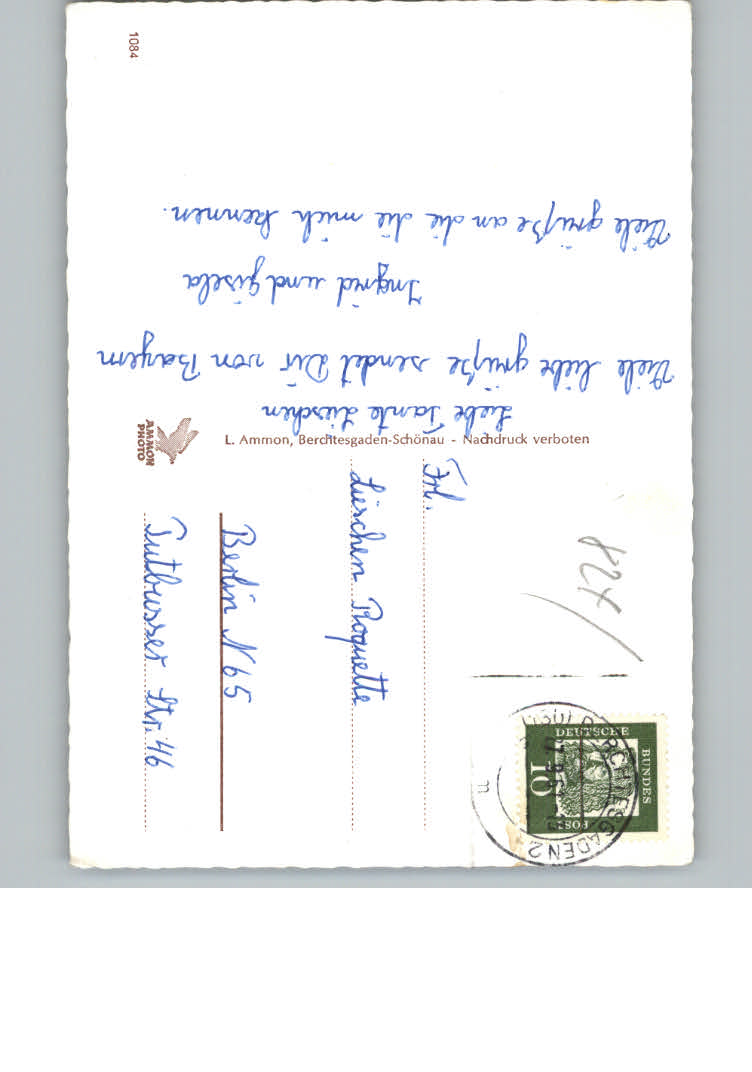 Liebe Tante Lieschen
Viele liebe grüße sendet Dir von Bayern
Ingrid und Gisela
Viele grüße an die die mich kennen.
1084
L. Ammon, Berchtesgaden-Schönau - Nachdruck verboten
AMMON
PHOTO
Frl.
Lieschen Roquette
Berlin N 65
Putbusser Str. 46
824
DEUTSCHE
BUNDES
POST
10
BERCHTESGADEN 2